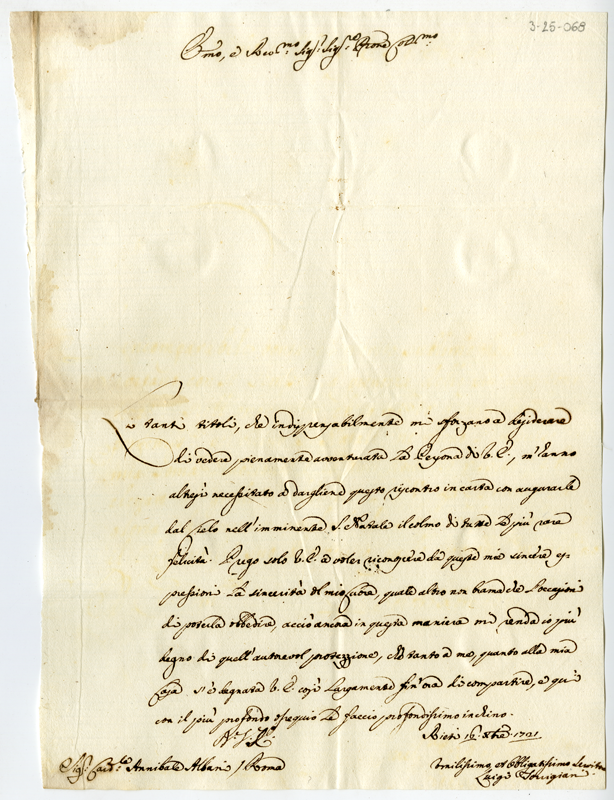 3-25-068
Emo, e Revmo Sigr: Sigr: Prone Colmo:
Li tanti titoli, che indispensabilmente mi sforzano a desiderare
di vedere pienamente avventurata la Persona di V. E., m'hanno
altresi necessitato a dargliene questo riscontro in carta con augurarle
dal Cielo nell'imminente S. Natale il colmo di tutte le più rare
felicità. Prego solo V. E. a voler riconoscere da queste mie sincere es-
pressioni la sincerità del mio Cuore, quale altro non brama che l'occasioni
di poterla obbedire, acciò ancora in questa maniera mi renda io più
degno di quell'autorevol protezzione, che tanto a me, quanto alla mia
Casa s'è degnata V. E. così largamente fin'ora di compartire, e qui
con il più profondo ossequio le faccio profondissimo inchino.
Rieti 16 Xbre 1721
Sigr: Cardle: Annibale Albani / Roma
Umilissimo et Obbligatissimo Servitore
Luigi